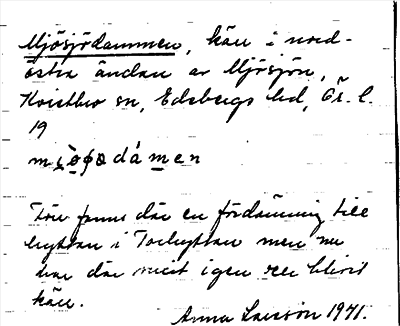 Mjösjödammen, kärr i nord-
östra ändan av Mjösjön,
Kvistbro sn, Edsbergs hd, Ör. l.
19
damen
Förr fanns där en fördämning till
hyttan i Torhyttan men nu
har där vuxit igen och blivit
kärr.
Anna Larsson 1971.